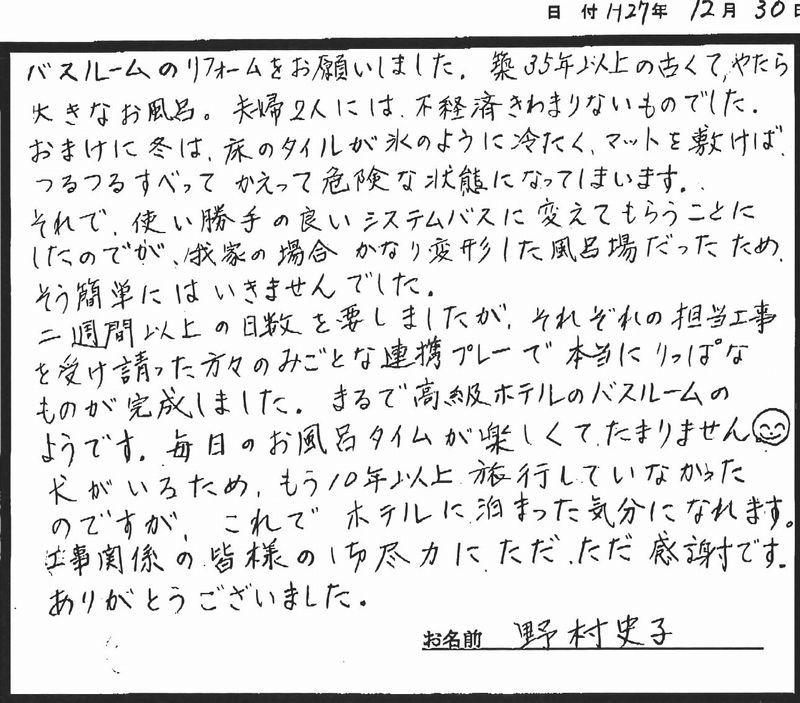 日付 H27年 12月 30日
バスルームのリフォームをお願いしました。築35年以上の古くて、やたら
大きなお風呂。夫婦2人には、不経済きわまりないものでした。
おまけに冬は、床のタイルが氷のように冷たく、マットを敷けば、
つるつるすべって かえって危険な状態になってしまいます。
それで、使い勝手の良いシステムバスに変えてもらうことに
したのですが、我家の場合 かなり変形した風呂場だったため、
そう簡単にはいきませんでした。
二週間以上の日数を要しましたが、それぞれの担当工事
を受け請った方々のみごとな連携プレーで本当にりっぱな
ものが完成しました。まるで高級ホテルのバスルームの
ようです。毎日のお風呂タイムが楽しくて、たまりません。
犬がいるため、もう10年以上旅行していなかった
のですが、これで ホテルに泊まった気分になれます。
工事関係の皆様のご尽力にただ、ただ感謝です。
ありがとうございました。
お名前 野村史子